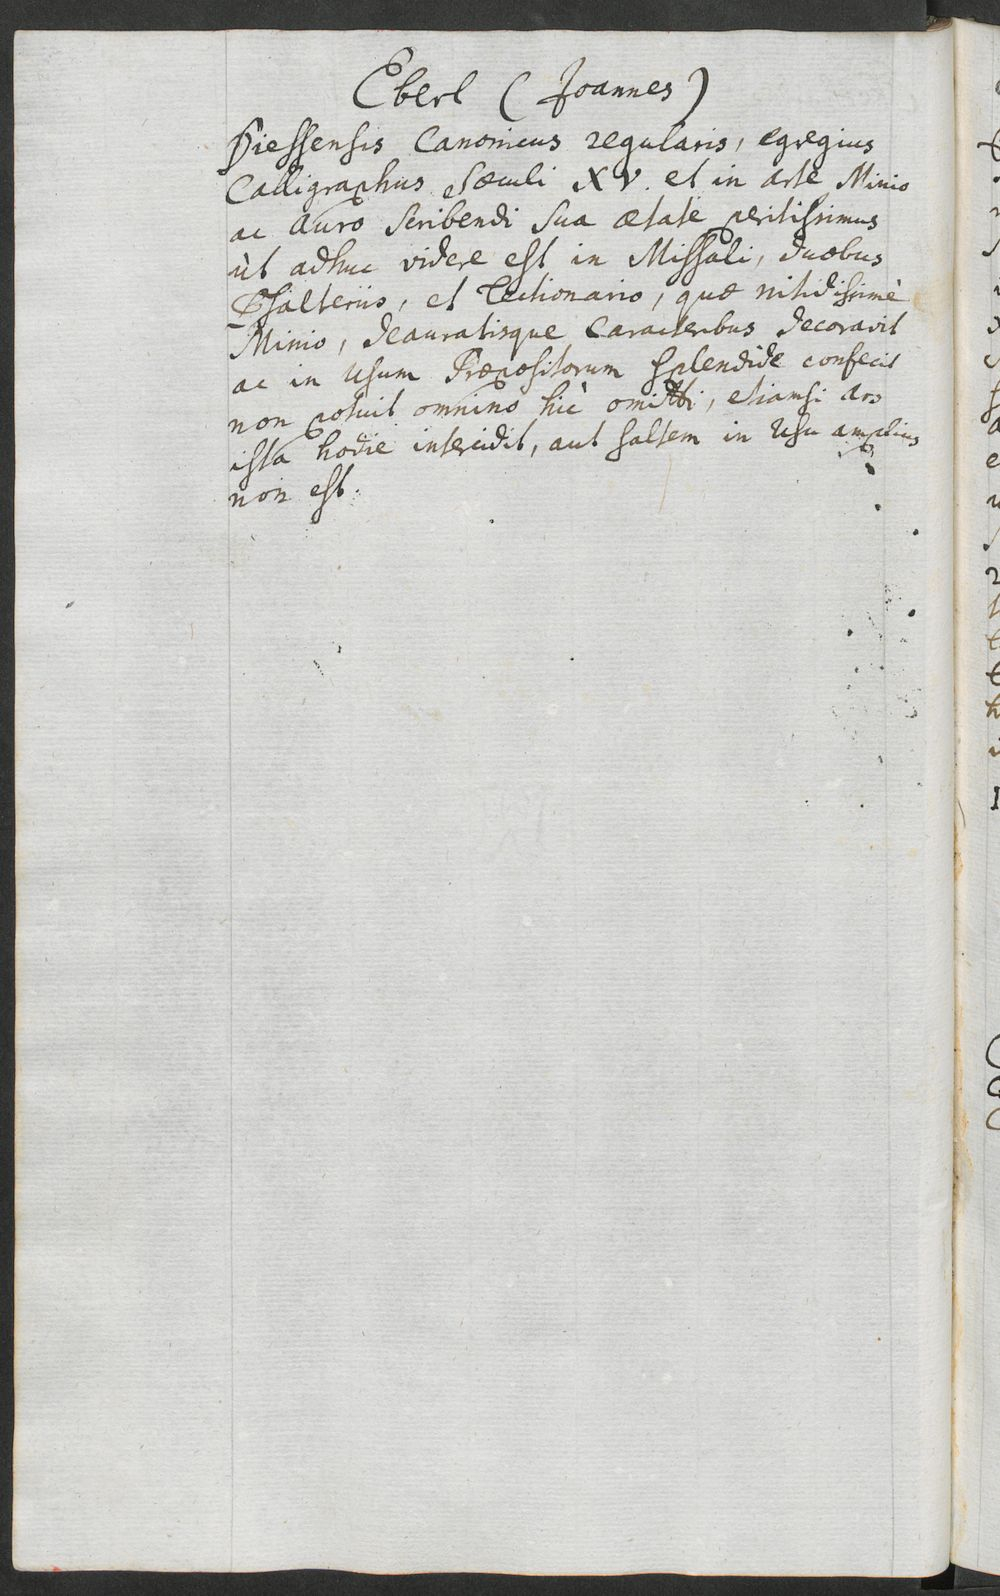 Eberl (Joannes)
Diessensis Canonicus regularis, egregius
Calligraphus Sæculi XV. et in arte Minio
ac Auro scribendi sua ætate peritissimus
ùt adhuc videre est in Missali, duobus
Psalteriis, et Lectionario, quæ nitidissimè
Minio, deauratisque Caracteribus decoravit
ac in Usum Præpositorum splendidè confecit
non potuit omnino hìc omitti, etiamsi Ars
ista hodie intercidit, aut saltem in Usu amplius
non est.